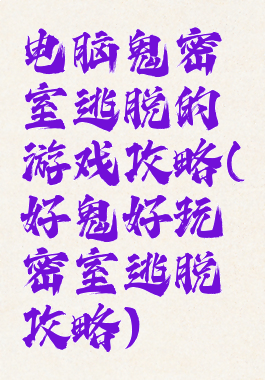 电脑鬼密
室逃脱的
游戏攻略(
好鬼好玩
密室逃脱
攻略)